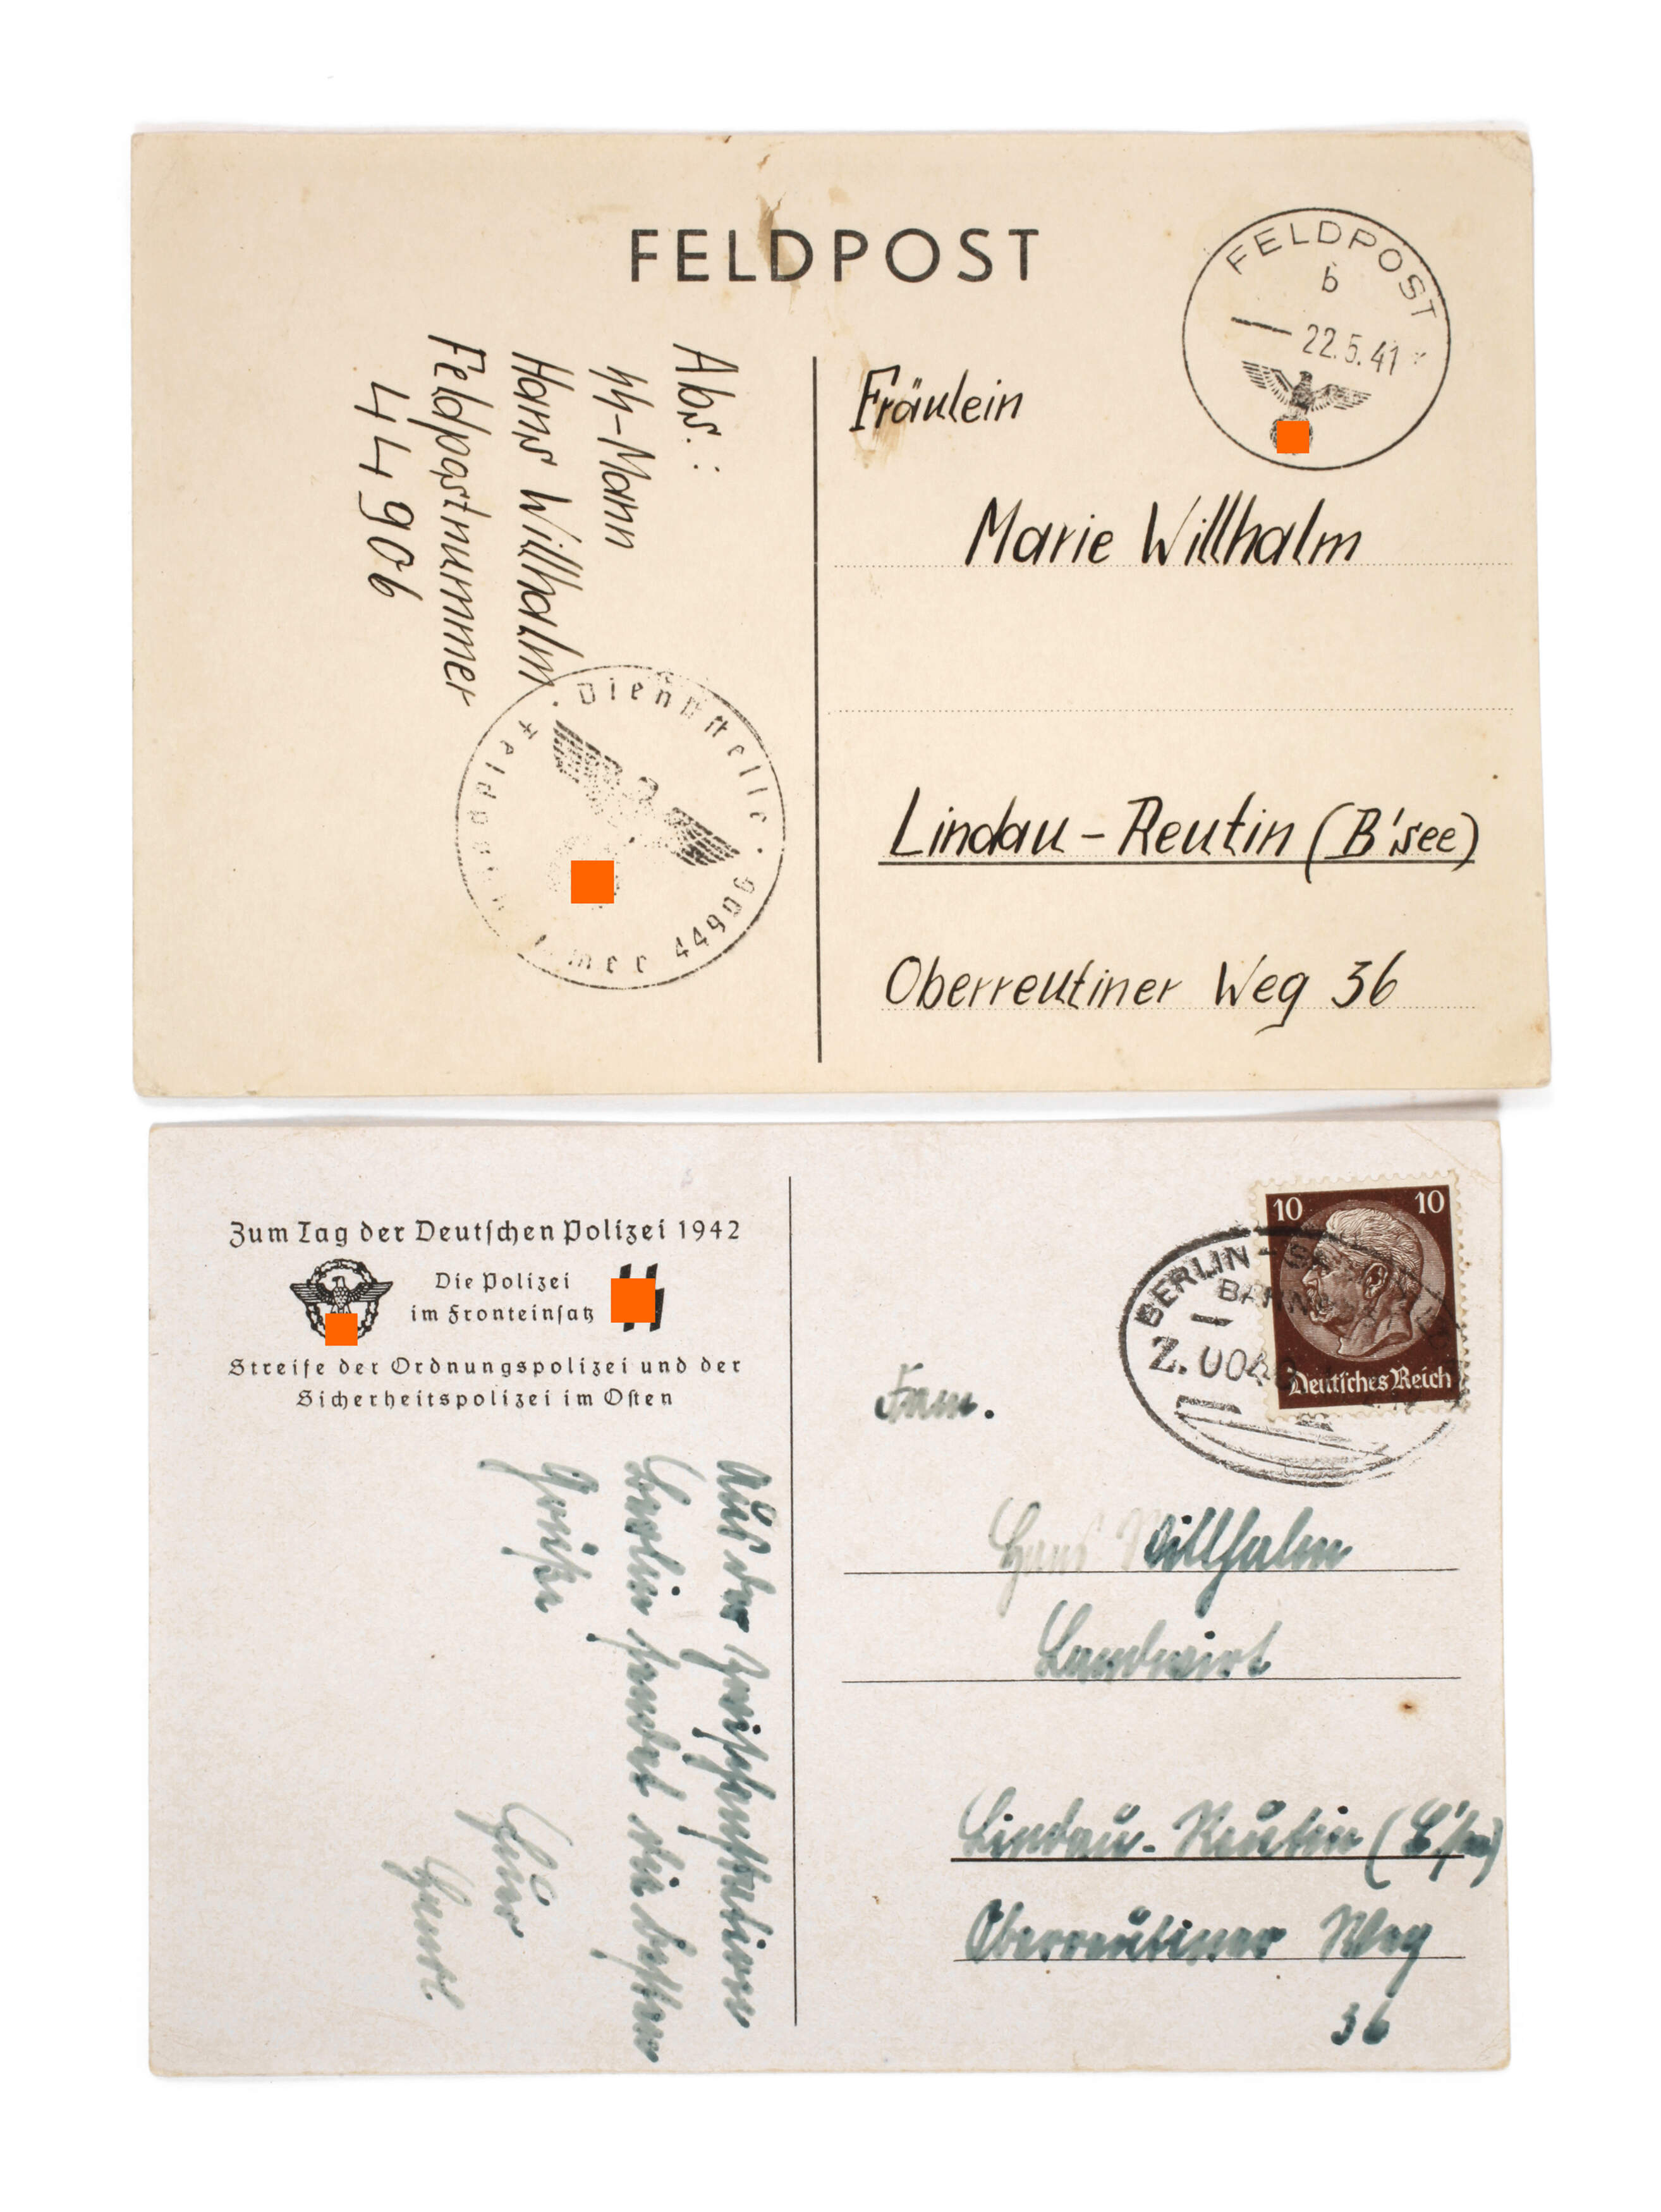 FELDPOST
FELDPOST
b
22.5.41
Abs.:
SS-Mann
Hans Willhalm
Feldpostnummer
44906
Dienststelle · Feldpostnummer 44906
Fräulein
Marie Willhalm
Lindau-Reutin (B'see)
Oberreutiner Weg 36
Zum Tag der Deutschen Polizei 1942
Die Polizei
im Fronteinsatz
Streife der Ordnungspolizei und der
Sicherheitspolizei im Osten
Aus der Zwischenstation
Berlin sendet die besten
Grüße
Euer
10 10
Deutsches Reich
BERLIN-
BAHN
Z.
Fam.
Hans Willhalm
Landwirt
Lindau-Reutin (B'see)
Oberreutiner Weg
36